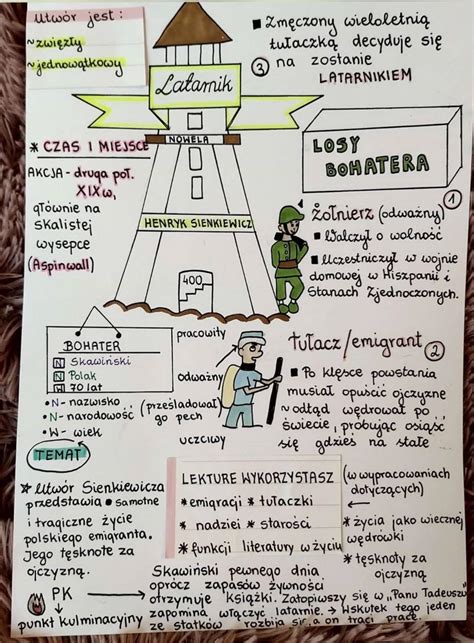 Utwór jest:
~zwięzły
~jednowątkowy
Latarnik
NOWELA
HENRYK SIENKIEWICZ
400
■ Zmęczony wieloletnią
tułaczką decyduje się
③ na zostanie
LATARNIKIEM
* CZAS I MIEJSCE
AKCJA - druga poł.
XIX w,
głównie na
skalistej
wysepce
(Aspinwall)
LOSY
BOHATERA
①
Żołnierz (odważny)
■ Walczył o wolność
■ Uczestniczył w wojnie
domowej w Hiszpanii i
Stanach Zjednoczonych.
BOHATER
N Skawiński
N Polak
W 70 lat
•N- nazwisko
•N- narodowość
•W- wiek
pracowity
odważny
(prześladował
go pech
uczciwy
tułacz/emigrant ②
■ Po klęsce powstania
musiał opuścić ojczyznę
~ odtąd wędrował po
świecie, próbując osiąść
się gdzieś na stałe
TEMAT
★ Utwór Sienkiewicza
przedstawia ■ samotne
i tragiczne życie
polskiego emigranta.
Jego tęsknote za
ojczyzną.
LEKTURE WYKORZYSTASZ
* emigracji * tułaczki
* nadziei * starości
* funkcji literatury w życiu
(w wypracowaniach
dotyczących)
* życia jako wiecznej
wędrówki
* tęsknoty za
ojczyzną
PK →
punkt kulminacyjny
Skawiński pewnego dnia
oprócz zapasów żywności
otrzymuje książki. Zatopiwszy się w „Panu Tadeuszu"
zapomina włączyć latarnie. → Wskutek tego jeden
ze statków rozbija się, a on traci pracę.